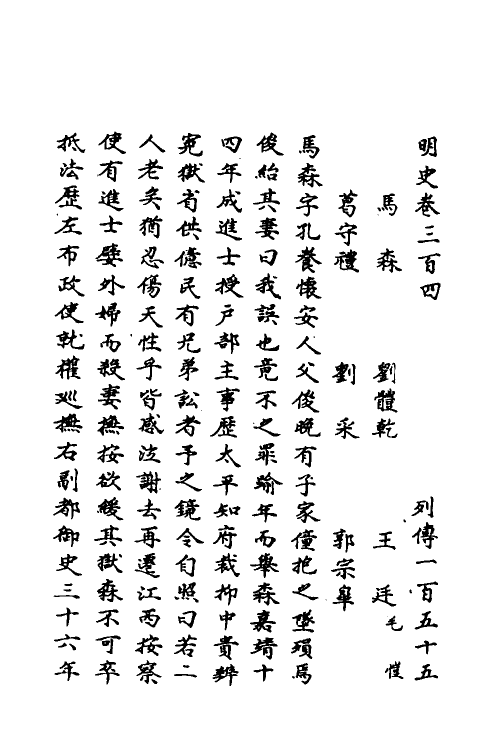 明史卷三百四 列傳一百五十五
馬森 劉體乾 王廷 毛愷
葛守禮 劉采 郭宗臯
馬森字孔養懷安人父俊晚有子家僮抱之墜殞焉
俊紿其妻曰我誤也竟不之罪踰年而舉森嘉靖十
四年成進士授戸部主事歴太平知府裁抑中貴辨
寃獄省供億民有兄弟訟者予之鏡令自照曰若二
人老矣猶忍傷天性乎皆感泣謝去再遷江西按察
使有進士嬖外婦而殺妻撫按欲緩其獄森不可卒
抵法歴左布政使就擢巡撫右副都御史三十六年